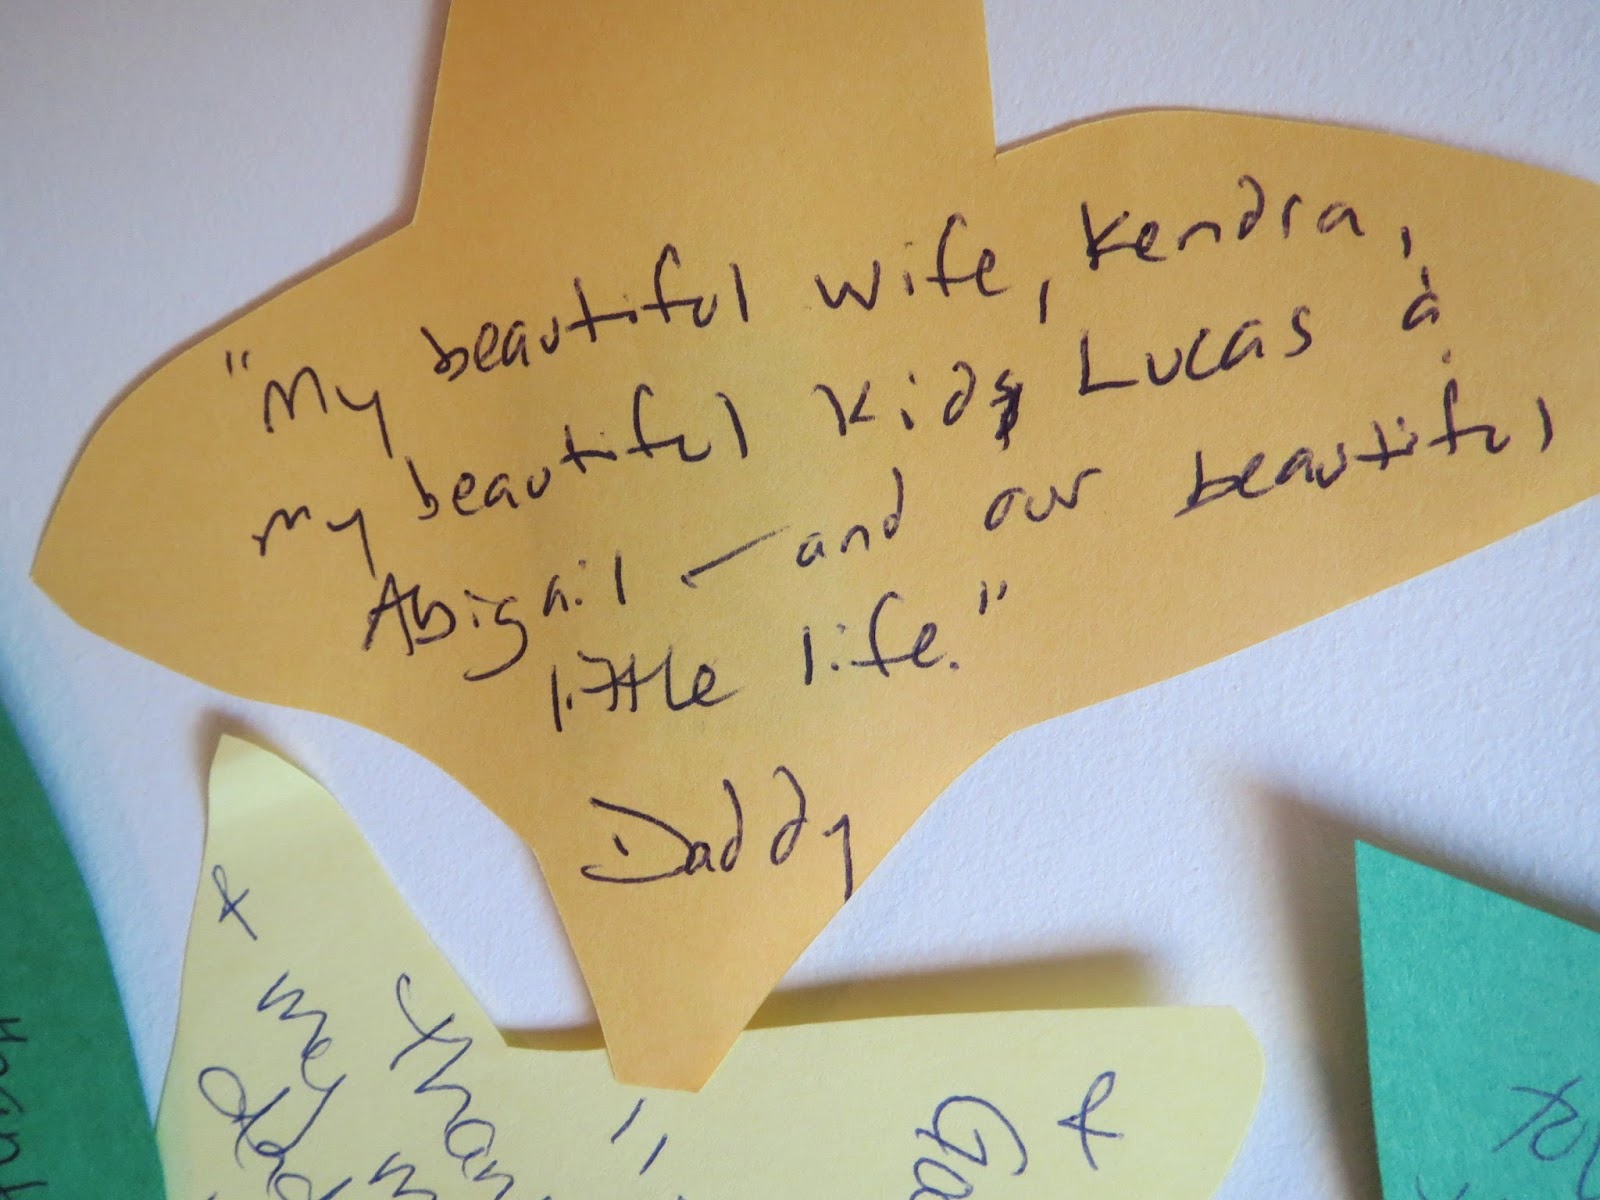 "My beautiful wife, Kendra,
my beautiful kids Lucas &
Abigail — and our beautiful
little life."
Daddy
&
my
than
"
&